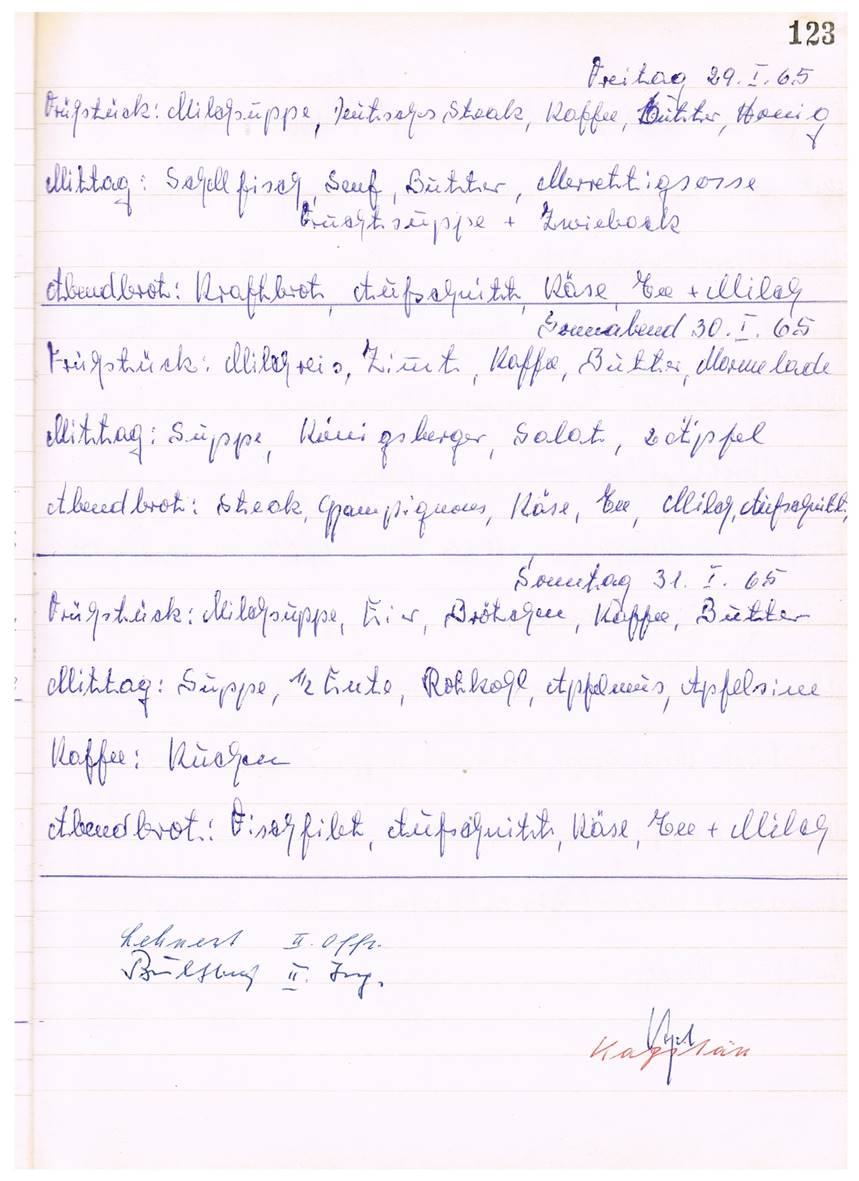 123
Freitag 29. I. 65
Frühstück: Milchsuppe, Deutsches Steak, Kaffee, Butter, Honig
Mittag: Schellfisch, Senf, Butter, Merrettigsosse
Fruchtsuppe + Zwieback
Abendbrot: Kraftbrot, Aufschnitt, Käse, Tee + Milch
Sonnabend 30. I. 65
Frühstück: Milchreis, Zimt, Kaffe, Butter, Marmelade
Mittag: Suppe, Königsberger, Salat, 2 Äpfel
Abendbrot: Steak, Champignons, Käse, Tee, Milch, Aufschnitt,
Sonntag 31. I. 65
Frühstück: Milchsuppe, Eier, Brötchen, Kaffee, Butter
Mittag: Suppe, 1/2 Ente, Rotkohl, Apfelmus, Apfelsine
Kaffee: Kuchen
Abendbrot: Fischfilet, Aufschnitt, Käse, Tee + Milch
Lehnert II. Offz.
II. Ing.
Kapitän